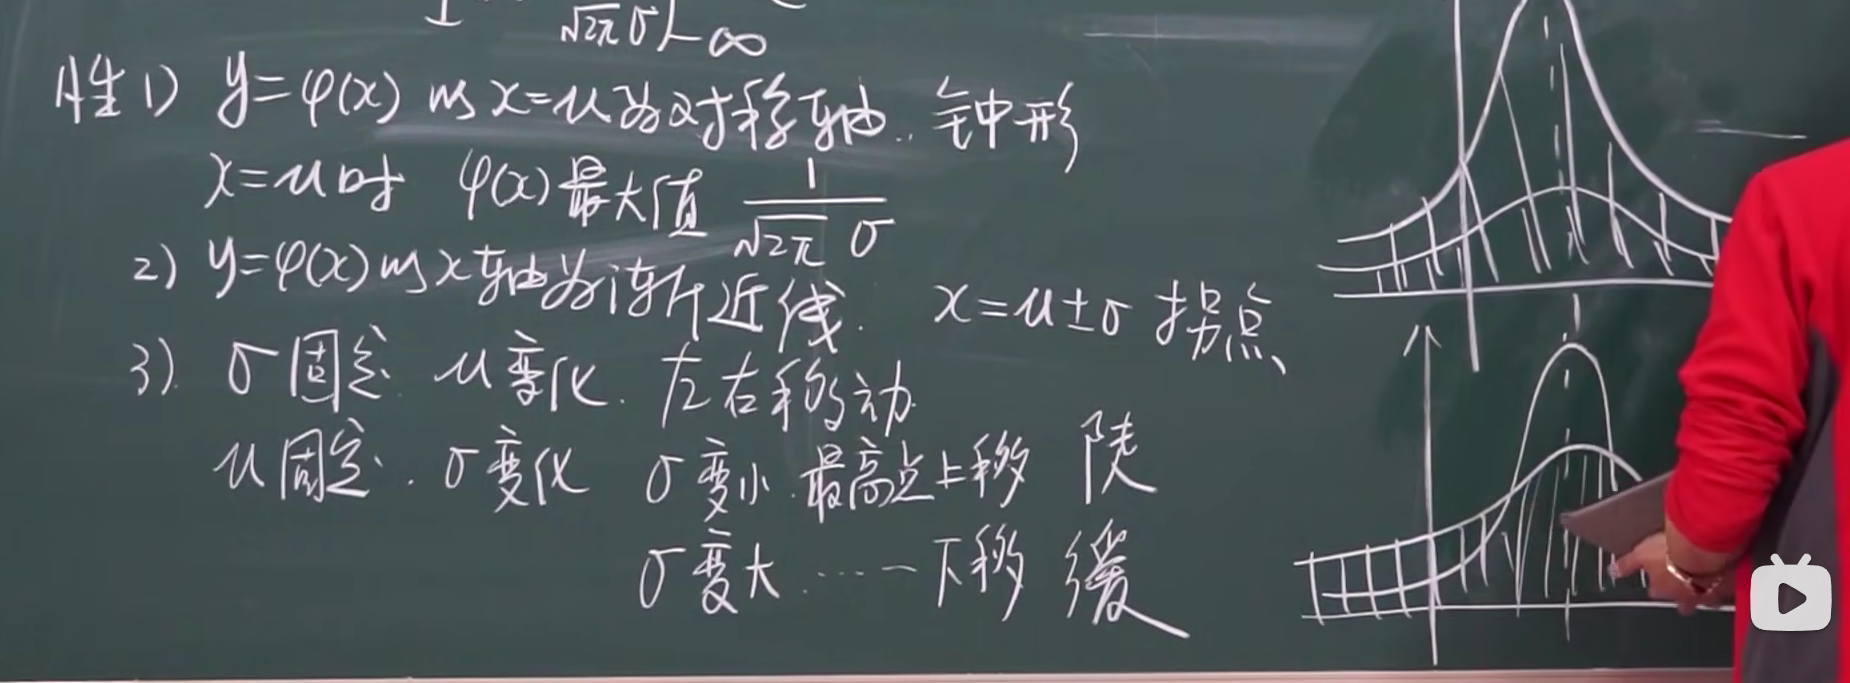 √2π σ -∞
性 1) y=φ(x) 以 x=μ 为对称轴.. 钟形
x=μ时 φ(x)最大值 1/(√2π σ)
2) y=φ(x)以x轴为渐近线. x=μ±σ 拐点、
3). σ固定. μ变化. 左右移动.
μ固定. σ变化 σ变小. 最高点上移 陡
σ变大......下移 缓